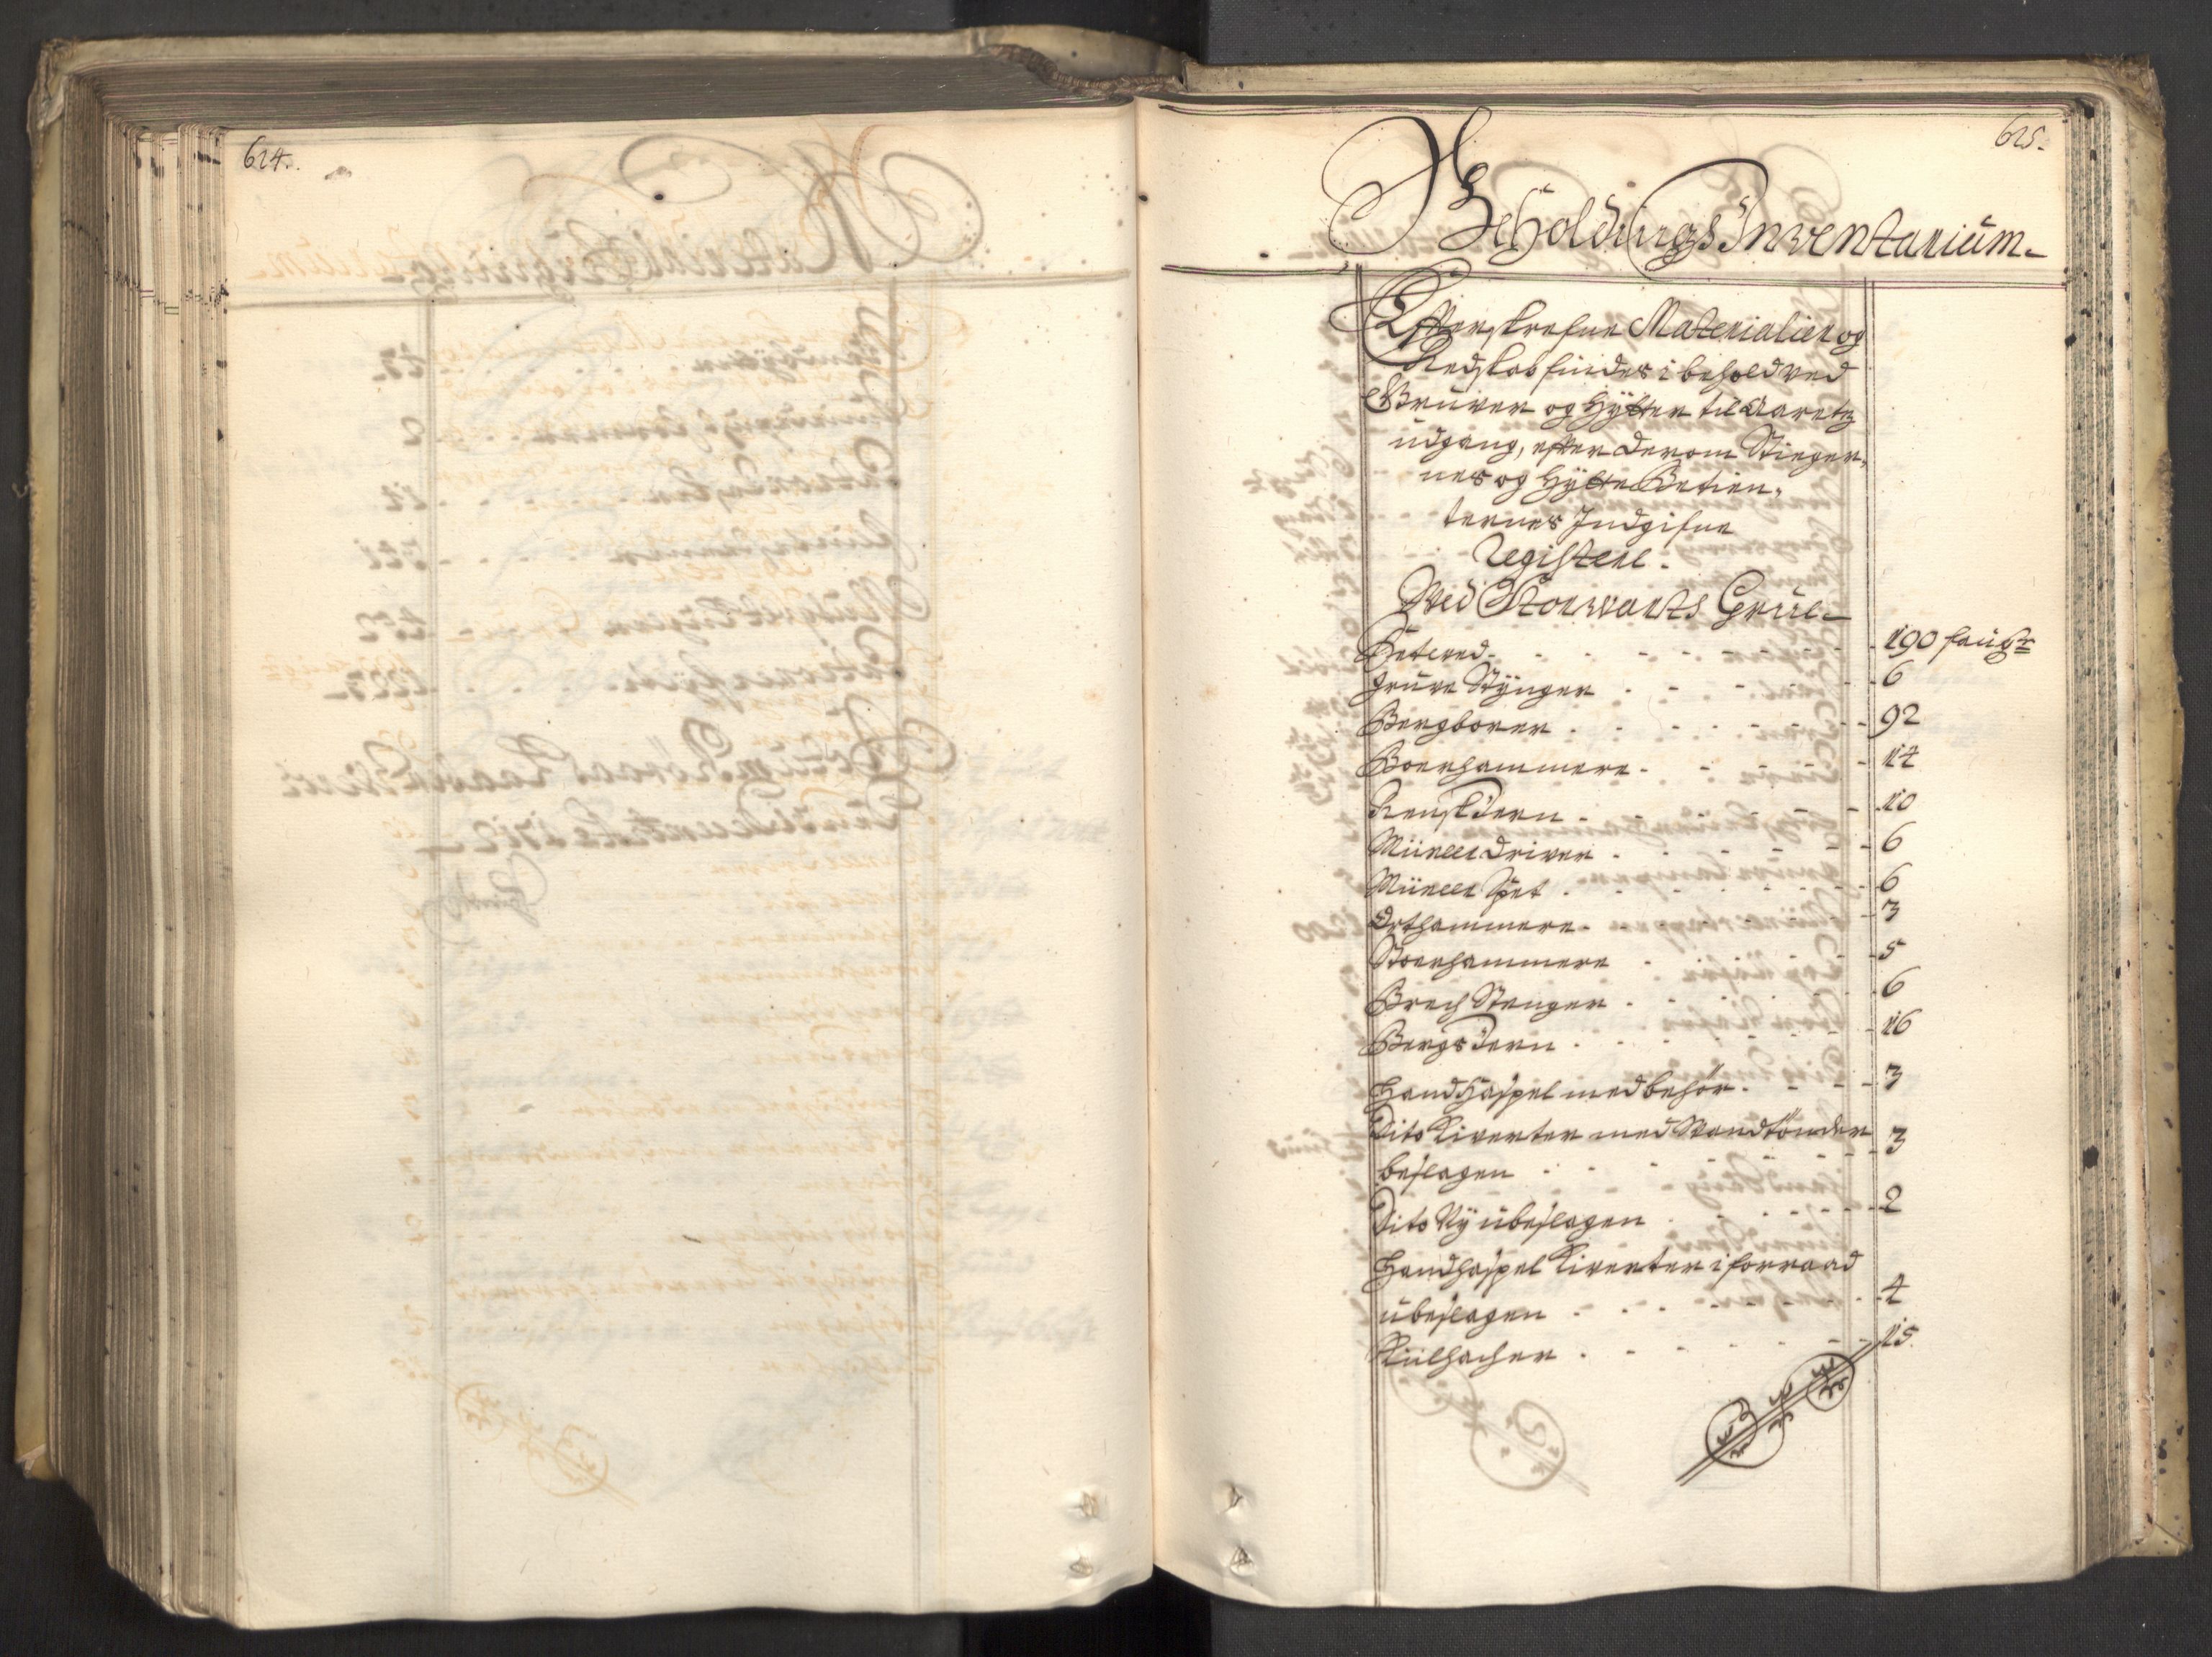 624.
625.
Beholdings Inventarium
Efterskrefne Materialier og
Redskab findes i behold ved
Gruver og Hytter til Aaretz
udgang, efter derom Stieger,
nes og Hytte Betien,
ternes Indgifne
Registere.
Ved Storwarts Grue
Setved - 190 faufr
Grube Stynger - 6
Bergborer - 92
Boerhammere - 14
Rensk Jern - 10
Müneer driver - 6
Müneer Spet - 6
Orthammere - 3
Stoerhammere - 5
Brech Stenger - 6
Bergs Jern - 16
Handhaspel med behör - 3
Dito Kiverter med Vandtönder
beslagen - 3
Dito Ny übeslagen - 2
Handhaspel Kiverter i forraad
übeslagen - 4
Külhacher - 15